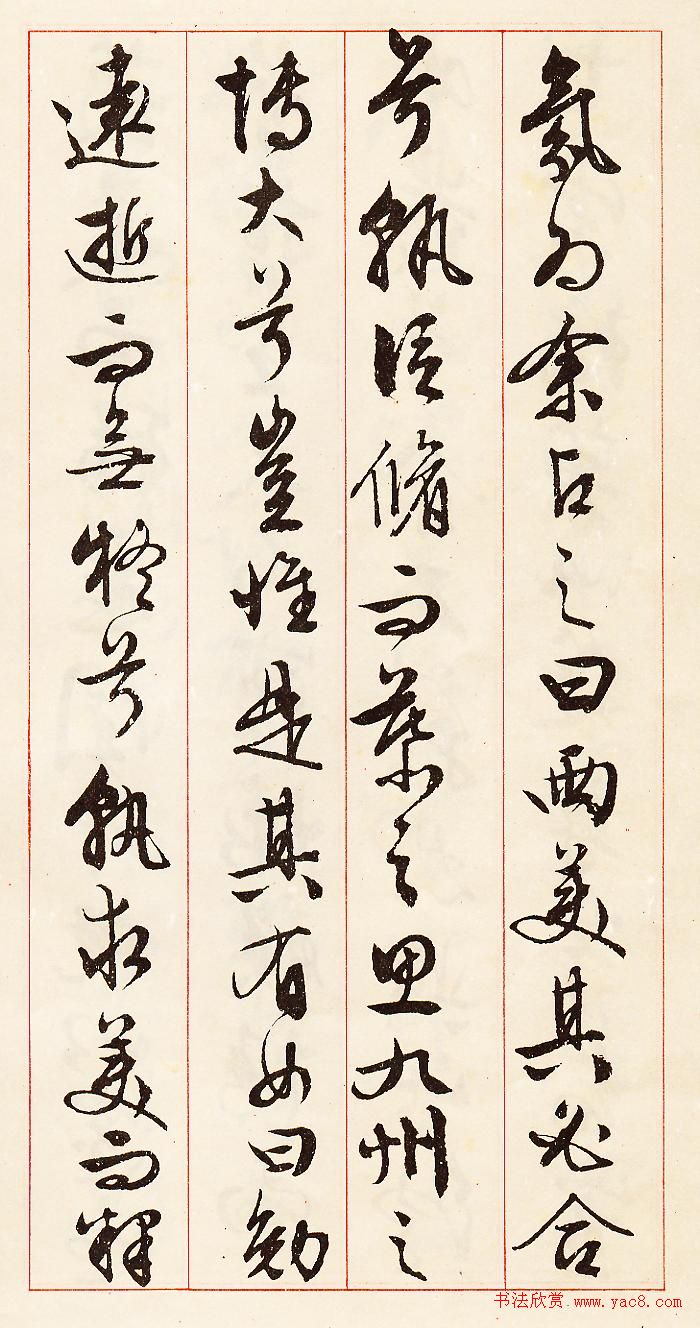 氛為余占之曰兩美其必合
兮孰信脩而慕之思九州之
博大兮豈惟是其有女曰勉
遠逝而無疑兮孰求美而釋
书法欣赏:www.yac8.com